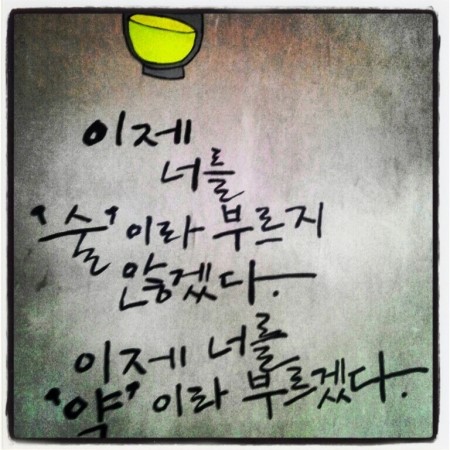 이제
너를
'술'이라 부르지
않겠다.
이제 너를
'약'이라 부르겠다.